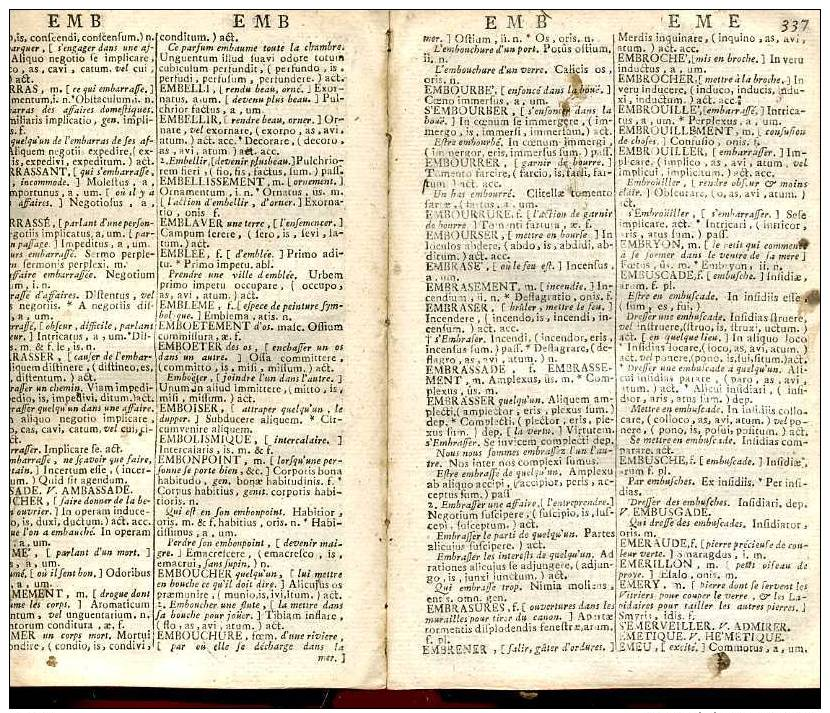 EMB EMB
,is. conscendi, conscensum.) n.
arquer, [ s'engager dans une af-
Aliquo negotio se implicare,
o, as, cavi, catum. vel cui,
) act.
RRAS, m. [ ce qui embarrasse. ]
mentum,i. n. *Obstaculum,i. n.
arras des affaires domestiques.
miliaris implicatio, gen. impli-
s. f.
quelqu'un de l'embarras de ses af-
Aliquem negotiis expedire, ( ex-
is, expedivi, expeditum. ) act.
RRASSANT, [ qui s'embarrasse,
, incommode. ] Molestus, a,
mportunus, a, um. [ où il y a
affaires. ] Negotiosus, a,
RRASSÉ, [ parlant d'une person-
gotiis implicatus, a, um. [ par-
n passage. ] Impeditus, a, um.
urs embarrassé. Sermo perple-
n sermonis perplexi. m.
ffaire embarrassée. Negotium
m, i. n.
rassé d'affaires. Distentus, vel
s negotiis. * A negotiis dis-
, a, um.
rassé, [ obscur, difficile, parlant
eur. ] Intricatus, a, um. *Dif-
s. m. & f. le, is. n.
RASSER, [ causer de l'embar-
liquem distinere, ( distineo, es,
, distentum. ) act.
rasser un chemin. Viam impedi-
edio, is, impedivi, ditum.)act.
rasser quelqu'un dans une affaire.
aliquo negotio implicare,
o, cas, cavi, catum, vel cui, ci-
ct.
rrasser. Implicare se. act.
mbarrasse, ne sçavoir que faire,
tain. ] Incertum esse, ( incer-
um. ) Quid sit agendum.
SADE. V. AMBASSADE.
CHER, [ faire donner de la be-
ouvrier. ] In operam induce-
o, is, duxi, ductum. ) act. acc.
ue l'on a embauché. In operam
, a, um.
ME', [ parlant d'un mort. ]
s, a, um.
mé, [ où il sent bon, ] Odoribus
, a, um.
MEMENT, m. [ drogue dont
me les corps. ] Aromaticum
ntum, vel unguentarium. n.
ntorum conditura, æ. f.
MER un corps mort. Mortui
ondire, ( condio, is, condivi,
conditum. ) act.
Ce parfum embaume toute la chambre.
Unguentum illud suavi odore totum
cubiculum perfundit, ( perfundo, is,
perfudi, perfusum, perfundere. ) act.
EMBELLI, [ rendu beau, orné. ] Exor-
natus, a, um. [ devenu plus beau. ] Pul-
chrior factus, a, um.
EMBELLIR, [ rendre beau, orner. ] Or-
nate, vel exornare, (exorno, as, avi,
atum. ) act. acc. * Decorare, ( decoro,
as, avi, atum. ) act. acc.
2. Embellir.[devenir plus beau. ] Pulchrio-
rem fieri, ( fio, fis, factus, sum. ) pass.
EMBELLISSEMENT, m. [ ornement. ]
Ornamentum, i. n. * Ornatus, us. m.
[ l'action d'embellir, d'orner. ] Exorna-
tio, onis f.
EMBLAVER une terre, [ l'ensemencer. ]
Campum serere, ( sero, is, sevi, sa-
tum, ) act.
EMBLÉE, f. [ d'emblée. ] Primo adi-
tu. * Primo impetu. abl.
Prendre une ville d'emblée. Urbem
primo impetu occupare, ( occupo,
as, avi, atum. ) act.
EMBLEME, f. [ espece de peinture sym-
bolique. ] Emblema, atis. n.
EMBOETEMENT d'os. masc. Ossium
commissura, æ. f.
EMBOETER des os, [ enchasser un os
dans un autre. ] Ossa committere,
( committo, is, misi, missum. ) act.
Emboëter, [ joindre l'un dans l'autre. ]
Unum in aliud immittere, ( mitto, is,
misi, missum. ) act.
EMBOISER, [ attraper quelqu'un, le
dupper. ] Subducere aliquem. * Cir-
cumvenire aliquem.
EMBOLISMIQUE, [ intercalaire. ]
Intercalaris, is. m. & f.
EMBONPOINT, m. [ lorsqu'une per-
sonne se porte bien, &c. ] Corporis bona
habitudo, gen. bonæ habitudinis. f. *
Corpus habitius, genit. corporis habi-
tioris. n.
Qui est en son embonpoint. Habitior,
oris. m. & f. habitius, oris. n. * Habi-
tissimus, a, um.
Perdre son embonpoint, [ devenir mai-
gre. ] Emacrescere, ( emacresco, is,
emacrui, sans supin, ) n.
EMBOUCHER quelqu'un, [ lui mettre
en bouche ce qu'il doit dire. ] Alicujus os
præmunire, ( munio,is,ivi,itum. ) act.
2. Emboucher une flute, [ la mettre dans
sa bouche pour joüer. ] Tibiam inflare,
( flo, as, avi, atum. ) act.
EMBOUCHURE, fœm. d'une riviere,
[ par où elle se décharge dans la
mer. ]
EMB EME 337
mer. ] Ostium, ii. n. * Os, oris. n.
L'embouchure d'un port. Potûs ostium,
ii. n.
L'embouchure d'un verre. Calicis os,
oris. n.
EMBOURBE', [ enfoncé dans la bouë. ]
Cœno immersus, a, um.
S'EMBOURBER, [ s'enfoncer dans la
bouë. ] In cœnum se immergere, ( im-
mergo, is, immersi, immersum. ) act.
Estre embourbé. In cœnum immergi,
( immergor, eris, immersus sum. ) pass.
EMBOURRER, [ garnir de bourre. ]
Tomento farcire, ( farcio, is, farsi, far-
tum ) act. acc.
Un bas embourré. Clitellæ tomento
fartæ, ( fartus, a, um.
EMBOURRURE, f. [ l'action de garnir
de bourre. ] Tomenti fartura, æ. f.
EMBOURSER, [ mettre en bourse. ] In
loculos abdere, ( abdo, is, abdidi, ab-
ditum. ) act. acc.
EMBRASE', [ où le feu est. ] Incensus,
a, um.
EMBRASEMENT, m. [ incendie. ] In-
cendium, ii. n. * Deflagratio, onis. f.
EMBRASER, [ brûler, mettre le feu. ]
Incendere, ( incendo, is, incendi, in-
censum. ) act. acc.
† s'Embraser. Incendi, ( incendor, eris,
incensus sum. ) pass. * Deflagrare, ( de-
flagro, as, avi, atum. ) n.
EMBRASSADE, f. EMBRASSE-
MENT, m. Amplexus, ûs. m. * Com-
plexus, ûs. m.
EMBRASSER quelqu'un. Aliquem am-
plecti, ( amplector, eris, plexus sum. )
dep. * Complecti, ( plector, eris, ple-
xus sum. ) dep. [ la vertu. ] Virtutem.
s'Embrasser. Se invicem complecti dep.
Nous nous sommes embrassez l'un l'au-
tre. Nos inter nos complexi sumus.
Estre embrassé de quelqu'un. Amplexu
ab aliquo accipi, ( accipior, peris, ac-
ceptus sum. ) pass
2. Embrasser une affaire, [ l'entreprendre. ]
Negotium suscipere, ( suscipio, is, sus-
cepi, susceptum. ) act.
Embrasser le parti de quelqu'un. Partes
alicujus suscipere. ) act.
Embrasser les interests de quelqu'un. Ad
rationes alicujus se adjungere, ( adjun-
go, is, junxi junctum. ) act.
Qui embrasse trop. Nimia moliens,
entis. omn. gen.
EMBRASURES, f. [ ouvertures dans les
murailles pour tirer du canon. ] Apertæ
tormentis displodendis fenestræ, arum,
f. pl.
EMBRENER, [ salir, gâter d'ordures. ]
Merdis inquinare, ( inquino, as, avi,
atum. ) act. acc.
EMBROCHE', [ mis en broche. ] In veru
inductus, a, um.
EMBROCHER, [ mettre à la broche. ] In
veru inducere, ( induco, inducis, indu-
xi, inductum. ) act. acc.
EMBROUILLE', [ embarrassé. ] Intrica-
tus, a, um. * Perplexus, a, um.
EMBROUILLEMENT, m. [ confusion
de choses. ] Confusio, onis. f.
EMBROUILLER, [ embarrasser. ] Im-
plicare, ( implico, as, avi, atum, vel
implicui, implicitum. ) act.
Embroüiller, [ rendre obscur & moins
clair. ] Obscurare, ( o, as, avi, atum. )
act.
s'Embroüiller, [ s'embarrasser. ] Sese
implicare. act. * Intricari, ( intricor,
ris, atus sum. ) pass.
EMBRYON, m. [ le petit qui commence
à se former dans le ventre de sa mere ]
Fœtus, ûs. m. * Embryon, ii. n.
EMBUSCADE, f. [ embusche. ] Insidiæ,
arum. f. pl.
Estre en embuscade. In insidiis esse,
( sum, es, fui, )
Dresser une embuscade. Insidias struere,
vel instruere, ( struo, is, struxi, uctum. )
act. [ en quelque lieu. ] In aliquo loco
insidias locare, ( loco, as, avi, atum, )
act. vel ponere,(pono, is, fui, situm.)act.
* Dresser une embuscade à quelqu'un. Ali-
cui insidias parare, ( paro, as, avi,
atum, ) act. * Alicui insidiari, ( insi-
dior, aris, atus sum. ) dep.
Mettre en embuscade. In insidiis collo-
care, ( colloco, as, avi, atum, ) vel po-
nere, ( pono, is, posui, positum. ) act.
Se mettre en embuscade. Insidias com-
parare. act.
EMBUSCHE, f. [ embuscade. ] Insidiæ,
arum. f. pl.
Par embusches. Ex insidiis. * Per insi-
dias.
Dresser des embusches. Insidiari. dep.
V. EMBUSCADE.
Qui dresse des embuscades. Insidiator,
oris. m.
EMERAUDE, f. [ pierre précieuse de cou-
leur verte. ] Smaragdus, i. m.
EMERILLON, m. [ petit oiseau de
proye. ] Esalo, onis. m.
EMERY, m. [ pierre dont se servent les
Vitriers pour couper le verre, & les La-
pidaires pour tailler les autres pierres. ]
Smyris, idis. f.
S'EMERVEILLER. V. ADMIRER.
EMETIQUE. V. HE'METIQUE.
EMEU, [ excité. ] Commotus, a, um.